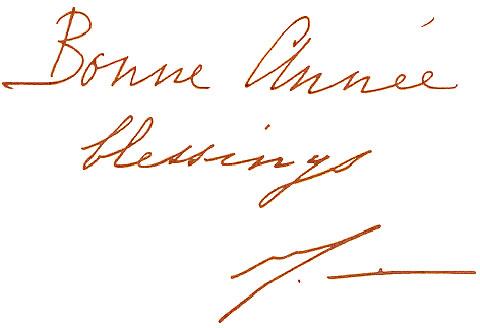 Bonne Année
blessings